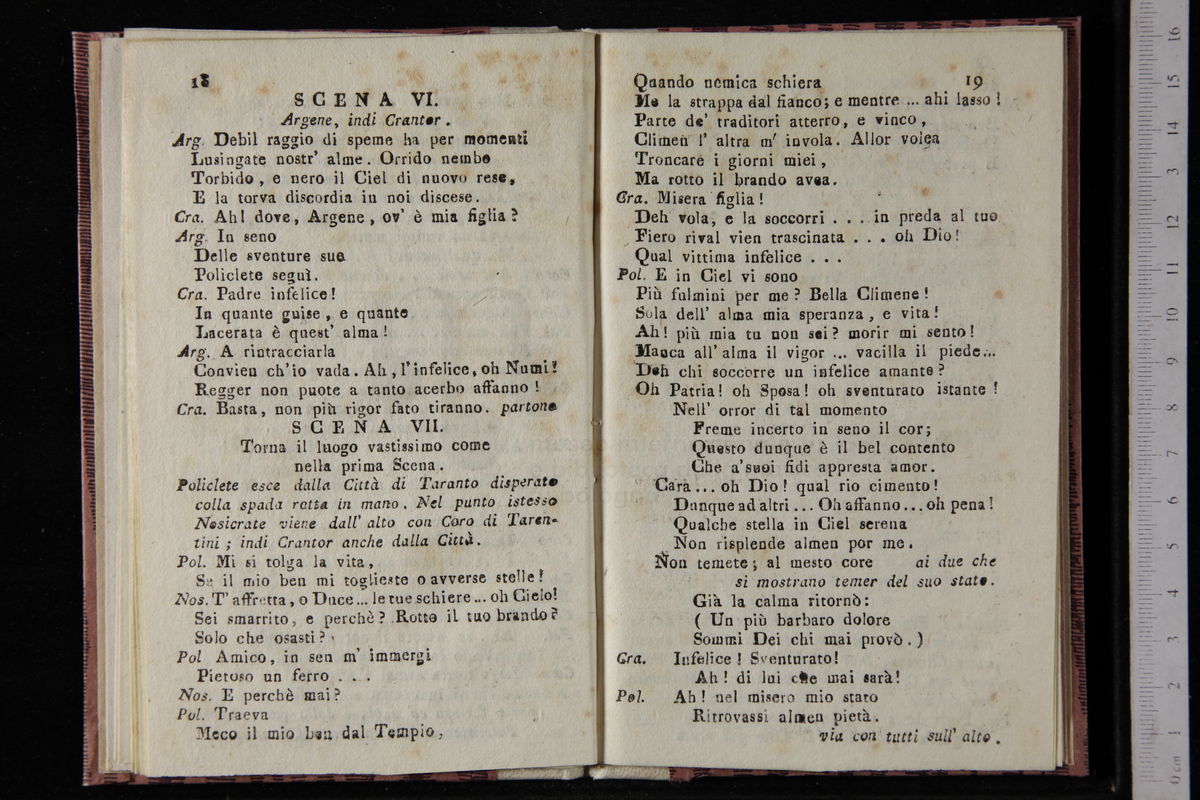 18
SCENA VI.
Argene, indi Crantor.
Arg. Debil raggio di speme ha per momenti
Lusingate nostr' alme. Orrido nembo
Torbido, e nero il Ciel di nuovo rese,
E la torva discordia in noi discese.
Cra. Ah! dove, Argene, ov' è mia figlia?
Arg. In seno
Delle sventure sue
Policlete seguì.
Cra. Padre infelice!
In quante guise, e quante
Lacerata è quest' alma!
Arg. A rintracciarla
Convien ch'io vada. Ah, l'infelice, oh Numi!
Regger non puote a tanto acerbo affanno!
Cra. Basta, non più rigor fato tiranno. partono
SCENA VII.
Torna il luogo vastissimo come
nella prima Scena.
Policlete esce dalla Città di Taranto disperato
colla spada rotta in mano. Nel punto istesso
Nosicrate viene dall' alto con Coro di Taren-
tini; indi Crantor anche dalla Città.
Pol. Mi si tolga la vita,
Se il mio ben mi toglieste o avverse stelle!
Nos. T' affretta, o Duce... le tue schiere... oh Cielo!
Sei smarrito, e perchè? Rotto il tuo brando?
Solo che osasti?
Pol Amico, in sen m' immergi
Pietoso un ferro . . .
Nos. E perchè mai?
Pol. Traeva
Meco il mio ben dal Tempio,
19
Quando nemica schiera
Me la strappa dal fianco; e mentre ... ahi lasso!
Parte de' traditori atterro, e vinco,
Climen l' altra m' invola. Allor volea
Troncare i giorni miei,
Ma rotto il brando avea.
Cra. Misera figlia!
Deh vola, e la soccorri . . . . in preda al tuo
Fiero rival vien trascinata . . . oh Dio!
Qual vittima infelice . . .
Pol. E in Ciel vi sono
Più fulmini per me? Bella Climene!
Sola dell' alma mia speranza, e vita!
Ah! più mia tu non sei? morir mi sento!
Manca all' alma il vigor ... vacilla il piede...
Deh chi soccorre un infelice amante?
Oh Patria! oh Sposa! oh sventurato istante!
Nell' orror di tal momento
Freme incerto in seno il cor;
Questo dunque è il bel contento
Che a'suoi fidi appresta amor.
Cara... oh Dio! qual rio cimento!
Dunque ad altri... Oh affanno... oh pena!
Qualche stella in Ciel serena
Non risplende almen per me.
Non temete; al mesto core ai due che
si mostrano temer del suo stato.
Già la calma ritornò:
( Un più barbaro dolore
Sommi Dei chi mai provò.)
Cra. Infelice! Sventurato!
Ah! di lui che mai sarà!
Pol. Ah! nel misero mio stato
Ritrovassi almen pietà.
via con tutti sull' alto.
16
15
14
13
12
11
10
9
8
7
6
5
4
3
2
1
0 cm